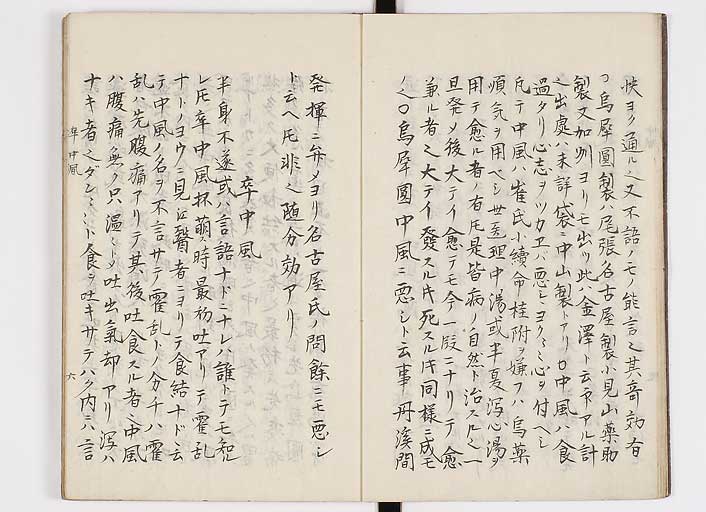 快ヨク通ル之又不語ノモノ能言之其奇効有
〇烏犀圓製ハ尾張名古屋製小見山藥助
製又加州ヨリモ出ツ此ハ金澤ト云アル計
之出處ハ未詳袋ニ中山製トアリ〇中風ハ食
過タリ心志ヲツカヱハ悪シヨク〻心ヲ付ヘシ
凡テ中風ハ崔氏小續命桂附ヲ嫌フハ烏藥
順氣ヲ用ベシ世医理中湯或半夏瀉心湯ヲ
用テ愈ル者ノ有モ是皆病ノ自然ト治スル之一
旦発メ後大テイ愈テモ今一段ニナリテ愈
兼ル者之大テイ發スルキ死スルキ同様ニ成モ
ノ之〇烏犀圓中風ニ悪シト云事丹溪間
発揮ニ弁メヨリ名古屋氏ノ問餘ニモ悪シ
ト云ヘ圧非之随分効アリ
卒中風
半身不遂或ハ言語ナドニナレハ誰トテモ知
レ圧卒中風抔萌ス時最初吐アリテ霍乱
ナドノヨウニ見ユ醫者ニヨリテ食結ナド云
テ中風ノ名ヲ不言サテ霍乱トノ分チハ霍
乱ハ先腹痛アリテ其後吐食スル者之中風
ハ腹痛無ク只温〻トメ吐出氣却アリ瀉ハ
ナキ者之ダン〻ト食ラ吐キサテハク内ニハ言
卒中風
六